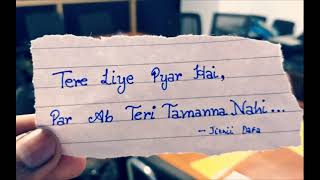 Tere Liye Pyar Hai,
Par Ab Teri Tamanna Nahi...